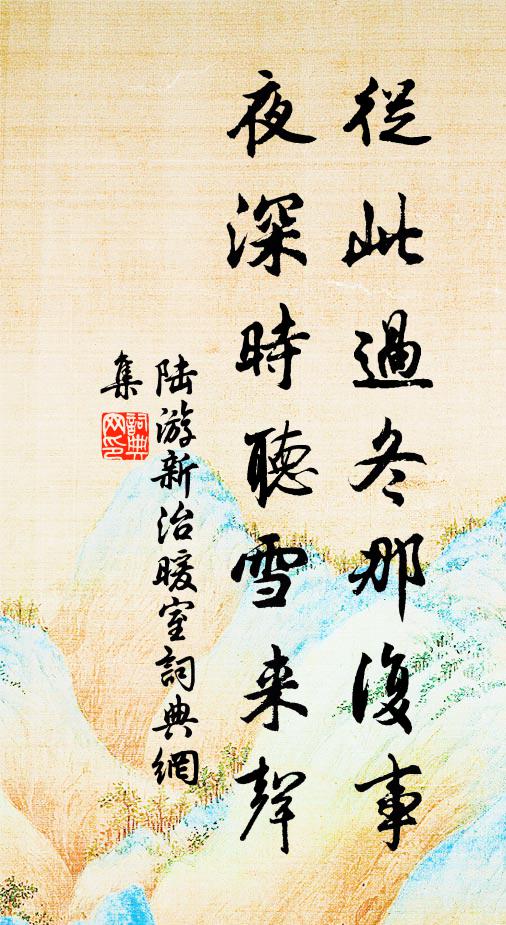 從此過冬那復事
夜深時聽雪来聲
陆游新治暖室詞典網
集
詞典
网印